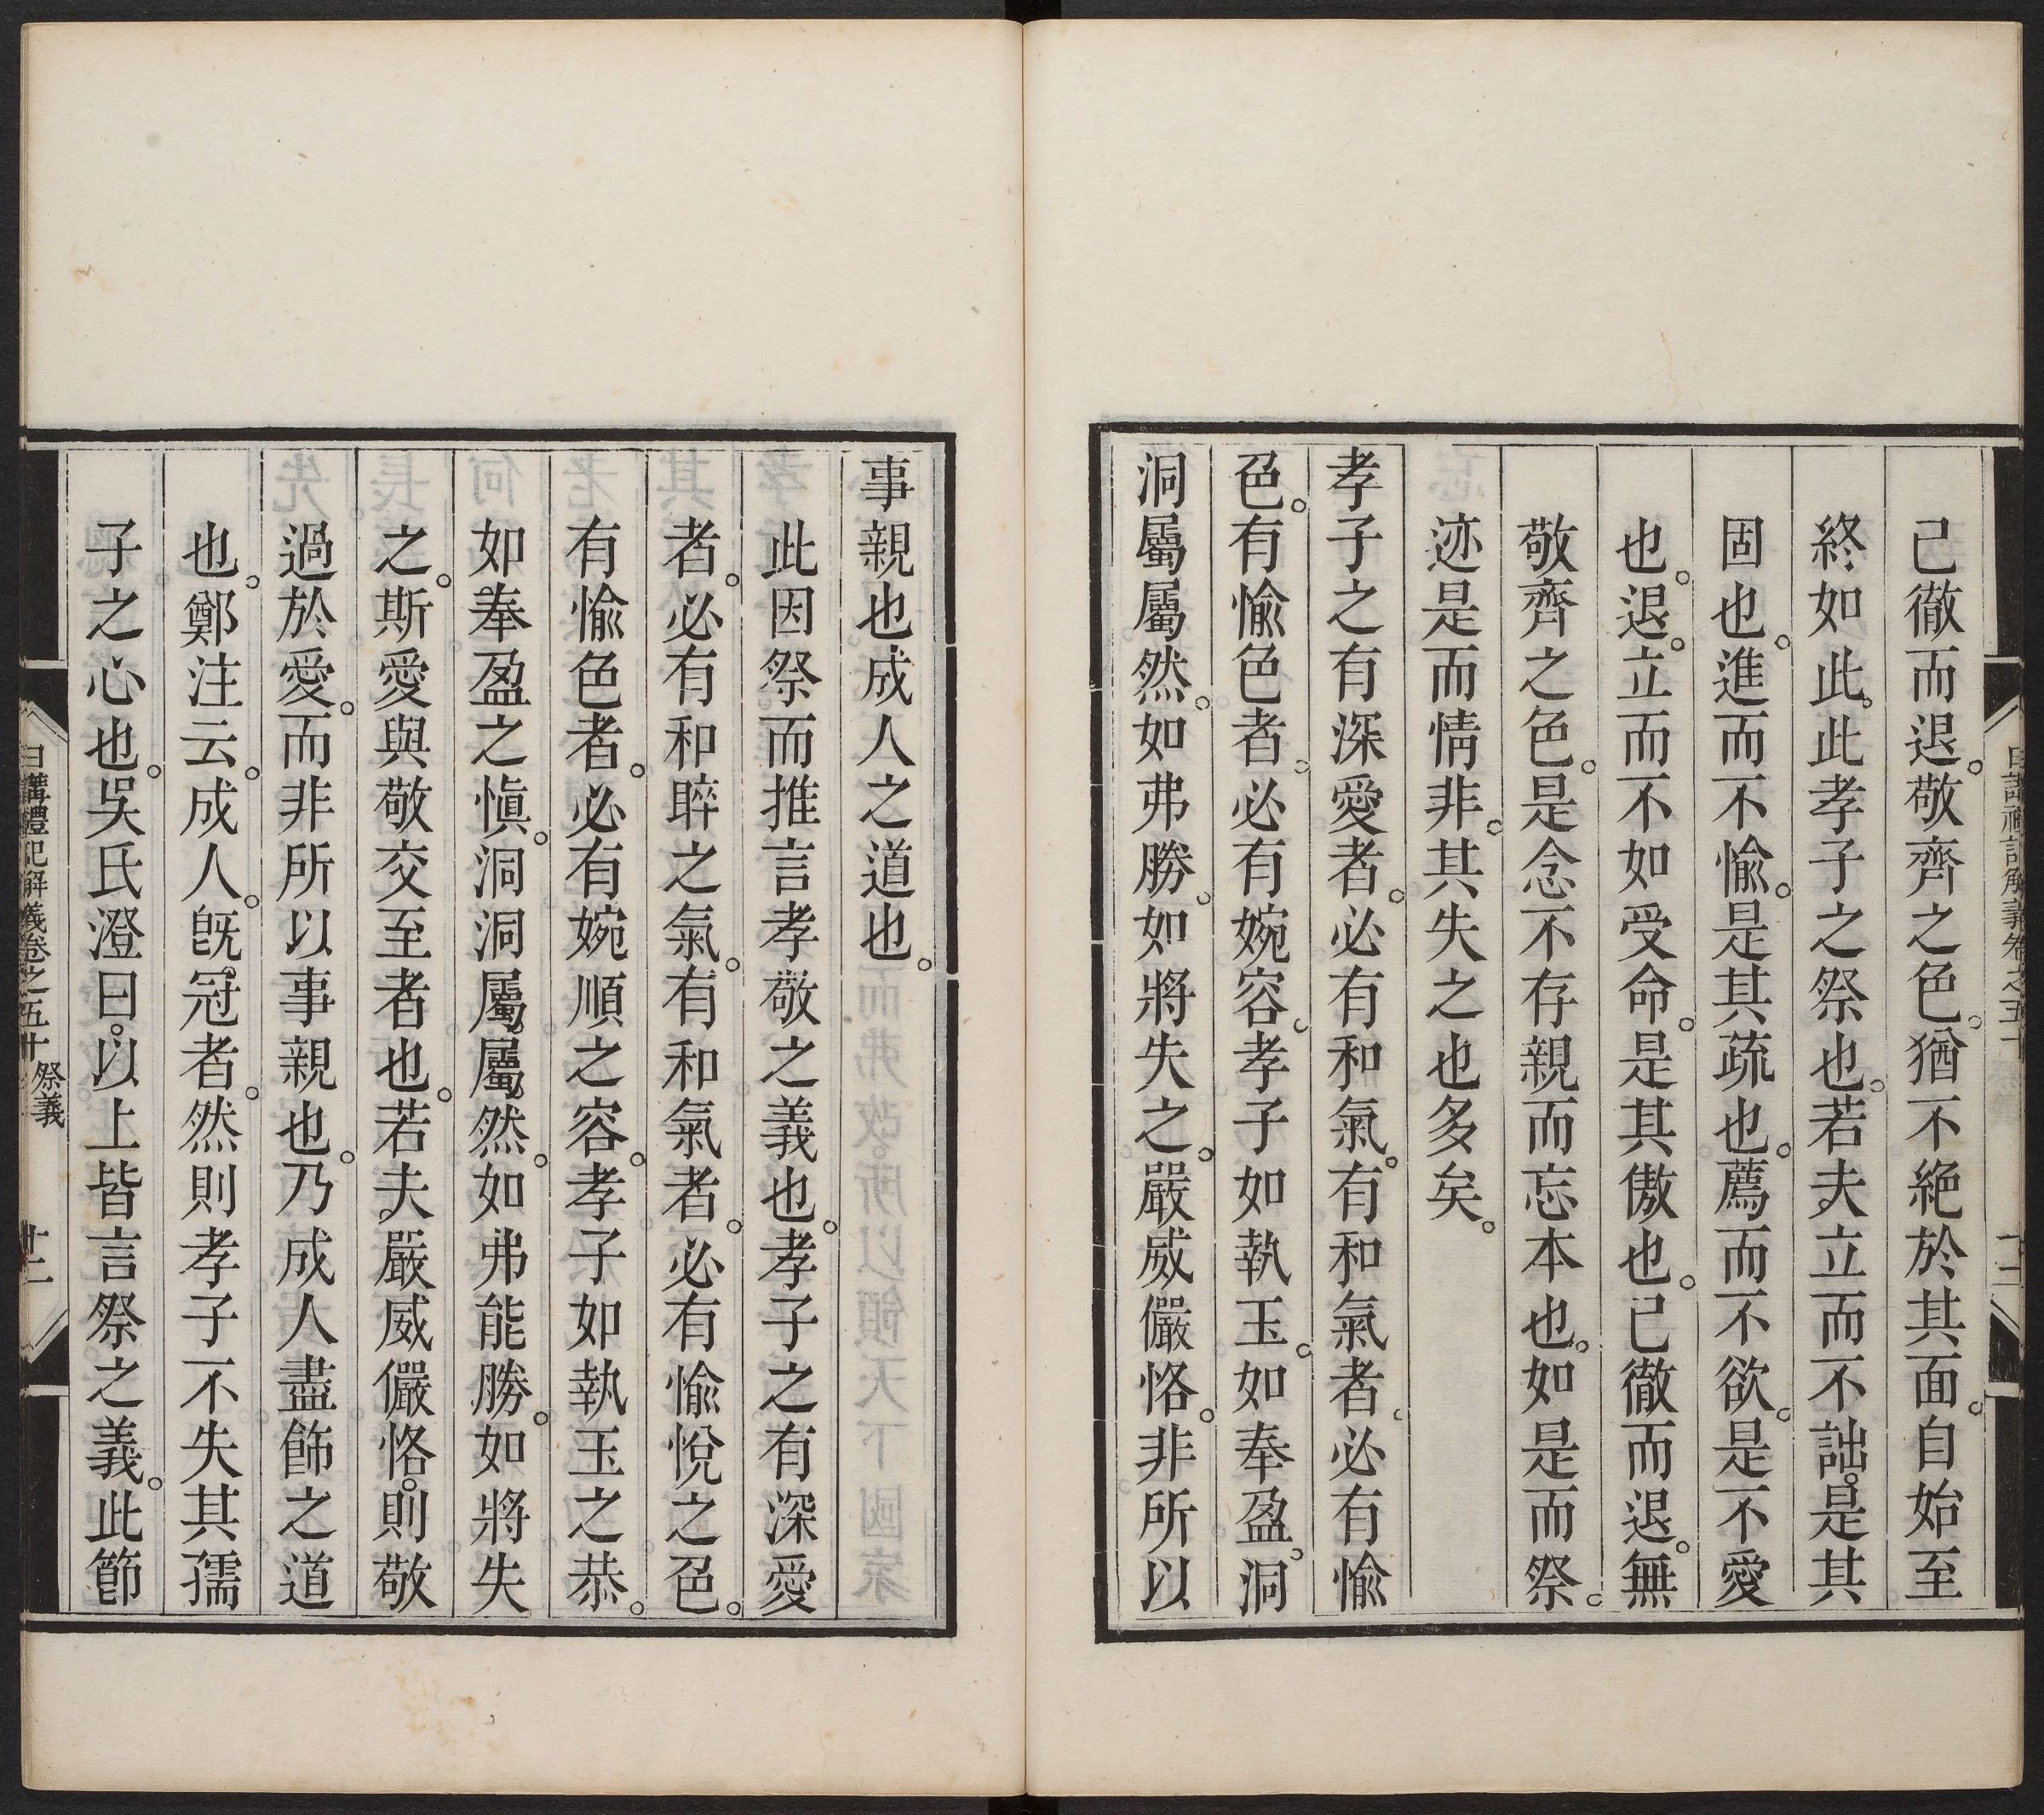 已徹而退。敬齊之色。猶不絕於其面。自始至
終如此。此孝子之祭也。若夫立而不詘。是其
固也。進而不愉。是其疏也。薦而不欲。是不愛
也。退。立而不如受命。是其傲也。已徹而退。無
敬齊之色。是念不存親而忘本也。如是而祭。
迹是而情非。其失之也多矣。
孝子之有深愛者。必有和氣。有和氣者。必有愉
色。有愉色者。必有婉容。孝子如執玉。如奉盈。洞
洞屬屬然。如弗勝。如將失之。嚴威儼恪。非所以
事親也成人之道也。
此因祭而推言孝敬之義也。孝子之有深愛
者。必有和睟之氣。有和氣者。必有愉悅之色。
有愉色者。必有婉順之容。孝子如執玉之恭。
如奉盈之愼。洞洞屬屬然。如弗能勝。如將失
之。斯愛與敬交至者也。若夫嚴威儼恪。則敬
過於愛。而非所以事親也。乃成人盡飾之道
也。鄭注云。成人。旣冠者。然則孝子不失其孺
子之心也。吳氏澄曰。以上皆言祭之義。此節
日講禮記解義卷之五十 祭義 十二